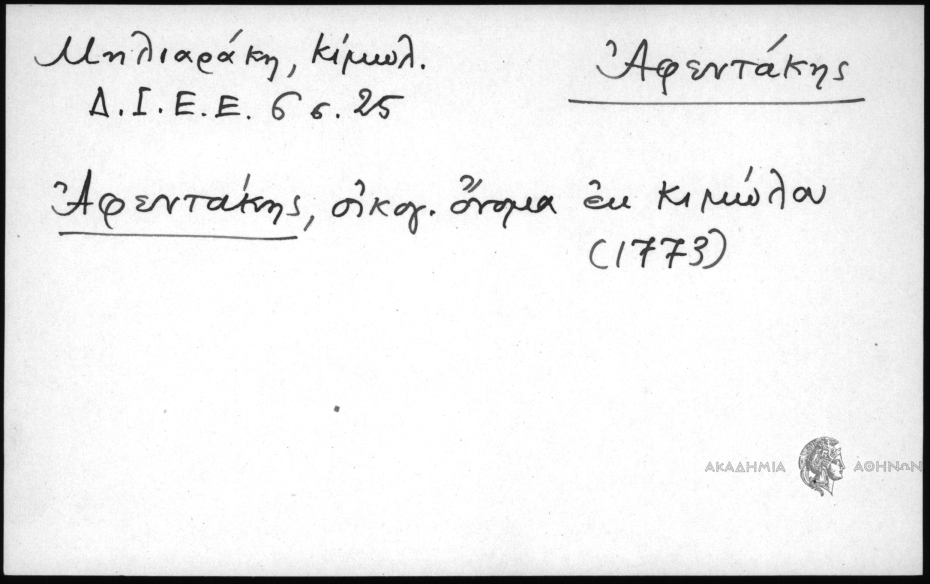 Μηλιαράκη, Κίμωλ.
Ἀφεντάκης
Δ.Ι.Ε.Ε. 6 σ. 25
Ἀφεντάκης, οἰκογ. ὄνομα ἐκ Κιμώλου
(1773)
ΑΚΑΔΗΜΙΑ ΑΘΗΝΩΝ